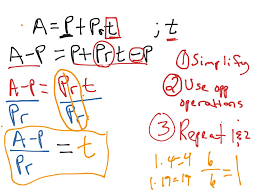 A = P + Prt ; t
A-P = P + Prt - P
A-P = Prt
Pr Pr
A-P = t
Pr
① Simplify
② Use opp
operations
③ Repeat 1&2
1·4=4 6/6 = 1
1·19=19